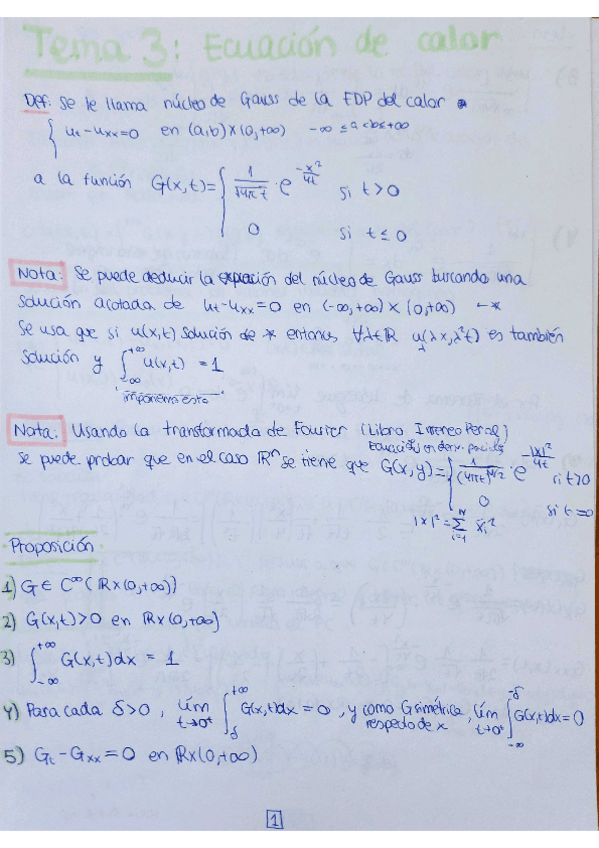 Tema 3: Ecuación de calor
Def: Se le llama núcleo de Gauss de la EDP del calor *
{ ut - uxx = 0 en (a,b)×(0,+∞) -∞ ≤ a < b ≤ +∞
a la función G(x,t) = { 1/√4πt · e^(-x²/4t) si t>0
0 si t ≤ 0
Nota: Se puede deducir la expresión del núcleo de Gauss buscando una
solución acotada de ut - uxx = 0 en (-∞,+∞) × (0,+∞) ←*
Se usa que si u(x,t) solución de * entonces ∀λ∈ℝ u(λx,λ²t) es también
solución y ∫_{-∞}^{+∞} u(x,t) = 1
imponemos esto
Nota: Usando la transformada de Fourier (Libro Ireneo Peral)
Ecuaciones en deriv. parciales
se puede probar que en el caso ℝⁿ se tiene que G(x,y) = { 1/(4πt)^(N/2) · e^(-|x|²/4t) si t>0
0 si t=0
|x|² = Σ_{i=1}^{N} xi²
Proposición
1) G ∈ C^∞(ℝ×(0,+∞))
2) G(x,t)>0 en ℝ×(0,+∞)
3) ∫_{-∞}^{+∞} G(x,t)dx = 1
4) Para cada δ>0, lím_{t→0⁺} ∫_{δ}^{+∞} G(x,t)dx = 0, y como G simétrica respecto de x, lím_{t→0⁺} ∫_{-∞}^{-δ} G(x,t)dx = 0
5) Gt - Gxx = 0 en ℝ×(0,+∞)
1